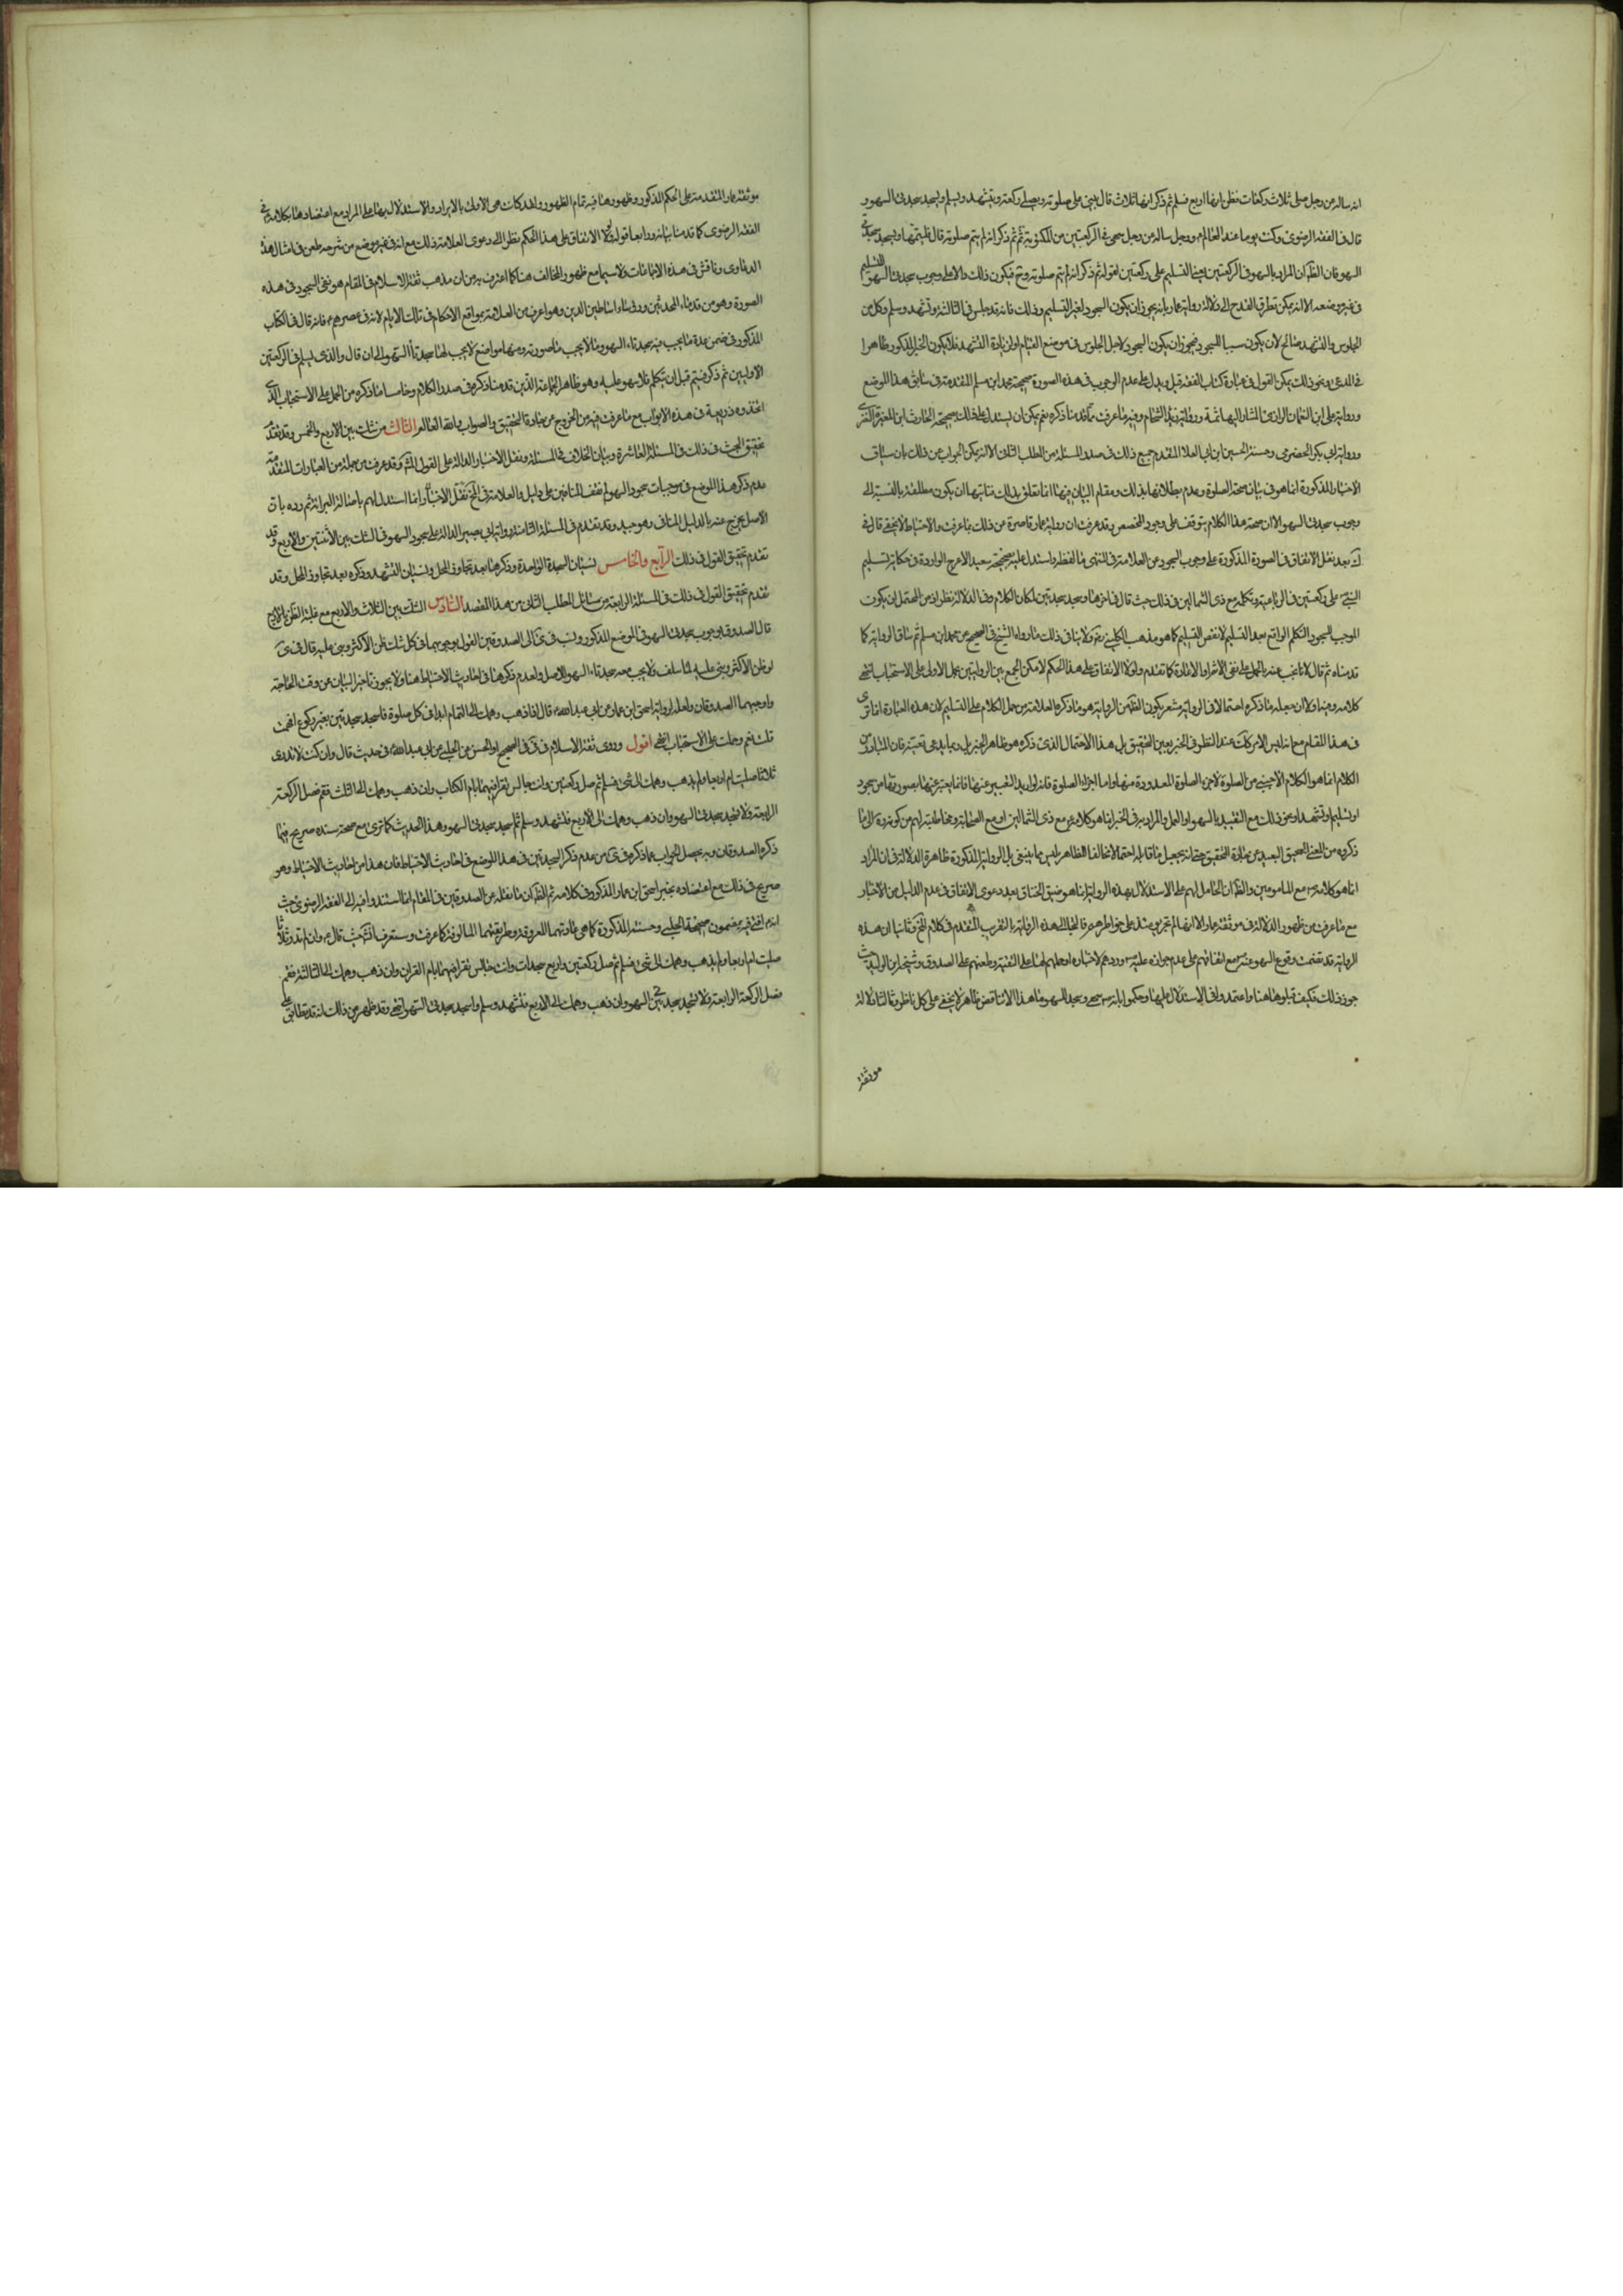 انه ساله عن رجل صلى ثلاث ركعات فظن انها اربع فسلم ثم ذكر انها ثلاث قال يبنى على صلوته ويصلى ركعة ويتشهد ويسلم ويسجد سجدتى السهو و
قال فى الفقه الرضوى وكنت يوما عند العالم ورجل ساله عن رجل سهى فى الركعتين من المكتوبة ثم ذكر انه لم يتم صلوته قال فليتمها ويسجد سجدتى
السهو فان الظ ان المراد بالسهو فى الركعتين يعنى التسليم على ركعتين لقوله ثم ذكر انه لم يتم صلوته وح فيكون ذلك دالا على وجوب سجدتى السهو للتسليم
فى غير موضعه الا انه يمكن تطرق القدح الى دلالة رواية عمار بانه يجوز ان يكون السجود لغير التسليم وذلك فانه قد جلس فى الثالثة وتشهد وسلم وكل من
الجلوس والتشهد صالح لان يكون سببا للسجود فيجوز ان يكون السجود لاجل الجلوس فى موضع القيام او لزيادة التشهد فلا يكون الخبر المذكور ظاهرا
فى المدعى وبنحو ذلك يمكن القول فى عبارة كتاب الفقه قيل ويدل على عدم الوجوب فى هذه الصورة صحيحة محمد ابن مسلم المتقدمة فى سابق هذا الموضع
ورواية على ابن النعمان الرازى المشار اليها ثمة ورواية زيد الشحام وفيه ما عرفت مما قدمنا ذكره نعم يمكن ان يستدل على ذلك بصحيحة الحارث ابن المغيرة النصرى
ورواية ابى بكر الحضرمى وحسنة الحسين ابن ابى العلا المتقدم جميع ذلك فى صدر المسئلة من المطلب الثانى الا انه يمكن الجواب عن ذلك بان سياق
الاخبار المذكورة انما هو فى بيان صحة الصلوة وعدم بطلانها بذلك ومقام البيان فيها انما تعلق بذلك غايتها ان يكون مطلقة بالنسبة الى
وجوب سجدتى السهو الا ان صحة هذا الكلام يتوقف على وجود المخصص وقد عرفت ان رواية عمار قاصرة عن ذلك بما عرفت والاحتياط لا يخفى قال فى
ك بعد نقل الاتفاق فى الصورة المذكورة على وجوب السجود عن العلامة فى المنتهى ما لفظه واستدل عليه بصحيحة سعيد الاعرج الواردة فى حكاية تسليم
النبى ص على ركعتين فى الرباعية وتكلمه مع ذى الشمالين فى ذلك حيث قال فى اخرها وسجد سجدتين لمكان الكلام وفى الدلالة نظر اذ من المحتمل ان يكون
الموجب للسجود التكلم الواقع بعد التسليم لا نفس التسليم كما هو مذهب الكلينى ره ولا ينافى ذلك ما رواه الشيخ فى الصحيح عن محمد ابن مسلم ثم ساق الرواية كما
قدمناه ثم قال لانا نجيب عنه بالحمل على نفى الاثم او الاعادة كما تقدم ولولا الاتفاق على هذا الحكم لامكن الجمع بين الروايتين بحمل الاولى على الاستحباب انتهى
كلامه وفيه اولا ان جعله ما ذكره احتمالا فى الرواية مشعر بكون الظ من الرواية هو ما ذكره العلامة من حمل الكلام على التسليم لان هذه العبارة انما ترى
فى هذا المقام مع انه ليس الامر كك عند النظر فى الخبر بعين التحقيق بل هذا الاحتمال الذى ذكره هو ظاهر الخبر بل ربما يدعى تعينه فان المتبادر من
الكلام انما هو الكلام الاجنبى من الصلوة لا جزء الصلوة المعدودة منها واما اجزاء الصلوة فانه لو اريد التعبير عنها فانما يعبر عنها بصورتها من سجود
او تسليم او تشهد او نحو ذلك مع التقييد بالسهو او العمل والمراد به فى الخبر انما هو كلامه ص مع ذى الشمالين او مع الصحابة ومخاطبته اياهم
ذكروه من المعنى السحيق البعيد عن جادة التحقيق حتى انه يجعل ما قابله احتمالا مخالفا للظاهر ليس مما ينبغى بل الرواية المذكورة ظاهرة الدلالة فى ان المراد
انما هو كلامه ص مع المامومين والظ ان الحامل لهم على الاستدلال بهذه الرواية انما هو ضيق الخناق بعد دعوى الاتفاق فى عدم الدليل من الاخبار
مع ما عرفت من ظهور الدلالة فى موثقة عمار الا انها لم تجر يومئذ على خواطرهم فالتجا الى هذه الرواية بالتقريب المتقدم فى كلام المخ وثانيا ان هذه
الرواية قد تضمنت وقوع السهو عنه ص مع اتفاقهم على عدم جوازه عليه ص وردهم لاخباره او حملهم لها على التقية وطعنهم على الصدوق وشيخه ابن الوليد حيث
جوزا ذلك فكيف قبلوها هنا واعتمدوا فى الاستدلال عليها وحكموا بانه ص سهى وسجد للسهو ما هذا الا تناقض ظاهر لا يخفى على كل ناظر وثالثا دلالة
موثقة
موثقة عمار المتقدمة على الحكم المذكور وظهورها فيه تمام الظهور ولقد كانت هى الاولى بالايراد والاستدلال بها على المراد مع اعتضادها بكلامه فى
الفقه الرضوى كما قدمنا بيانه ورابعا قوله ولولا الاتفاق على هذا الحكم نظرا الى دعوى العلامة ذلك مع انه فى غير موضع من شرحه طعن فى امثال هذه
الدعاوى وناقش فى هذه الاجماعات ولا سيما مع ظهور المخالف هنا كما اعترف به من ان مذهب ثقة الاسلام فى المقام هو نفى السجود فى هذه
الصورة وهو من قدماء المحدثين ورؤساء اساطين الدين وهو اعرف من العلامة بمواقع الاحكام فى تلك الايام لانه فى عصرهم ع فانه قال فى الكتاب
المذكور فى ضمن عدة ما يجب فيه سجدتا السهو وما لا يجب ما صورته ومنها مواضع لا يجب فيها سجدتا السهو الى ان قال والذى يسلم فى الركعتين
الاوليين ثم ذكر فيتم قبل ان يتكلم فلا سهو عليه وهو ظاهر الجماعة الذين قدمنا ذكرهم فى صدر الكلام وخامسا ما ذكره من الحمل على الاستحباب الذى
اتخذوه ذريعة فى هذه الابواب مع ما عرفت فيه من الخروج عن جادة التحقيق والصواب والله العالم الثالث من شك بين الاربع والخمس وقد تقدم
تحقيق البحث فى ذلك فى المسئلة العاشرة وبيان الخلاف فى المسئلة ونقل الاخبار الدالة على القول المش وقد عرفت من جملة من العبارات المتقدمة
عدم ذكر هذا الموضع فى موجبات سجود السهو ولم نقف للنافين على دليل والعلامة فى المخ نقل الاخبار وانما استدل لهم باصالة البراءة ثم رده بان
الاصل يخرج عنه بالدليل المناف وهو جيد وقد تقدم فى المسئلة الثامنة رواية ابى بصير الدالة على سجود السهو فى الشك بين الاثنتين والاربع وقد
تقدم تحقيق القول فى ذلك الرابع والخامس نسيان السجدة الواحدة وذكرها بعد تجاوز المحل ونسيان التشهد وذكره بعد تجاوز المحل وقد
تقدم تحقيق القول فى ذلك فى المسئلة الرابعة من مسائل المطلب الثانى من هذا المقصد السادس الشك بين الثلاث والاربع مع غلبة الظن بالاربع
قال الصدوق بوجوب سجدتى السهو فى الموضع المذكور ونسب فى ى الى الصدوقين القول بوجوبهما فى كل شك ظن الاكثر وبنى عليه قال فى ى
لو ظن الاكثر وبنى عليه لما سلف ولا يجب معه سجدتا السهو للاصل ولعدم ذكرها فى احاديث الاحتياط هنا ولا يجوز تاخير البيان عن وقت الحاجة
واوجبهما الصدوقان ولعله لرواية اسحق ابن عمار عن ابى عبد الله ع قال اذا ذهب وهمك الى التمام ابدا فى كل صلوة فاسجد سجدتين بغير ركوع افهمت
قلت نعم وحملت على الاستحباب انتهى اقول وروى ثقة الاسلام فى فى الصحيح او الحسن عن الحلبى عن ابى عبد الله ع فى حديث قال وان كنت لا تدرى
ثلاثا صليت ام اربعا ولم يذهب وهمك الى شئ فسلم ثم صل ركعتين وانت جالس تقرا فيهما بام الكتاب وان ذهب وهمك الى الثلث فقم فصل الركعة
الرابعة ولا تسجد سجدتى السهو وان ذهب وهمك الى الاربع فتشهد وسلم ثم اسجد سجدتى السهو وهذا الحديث كما ترى مع صحة سنده صريح فيما
ذكره الصدوقان وبه يحصل الجواب عما ذكره فى ى من عدم ذكر السجدتين فى هذا الموضع فى احاديث الاحتياط فان هذا من احاديث الاحتياط وهو
صريح فى ذلك مع اعتضاده بخبر اسحق ابن عمار المذكور فى كلامه ثم الظ ان ما نقله عن الصدوقين فى المقام انما استندوا فيه الى الفقه الرضوى حيث
انه ع افتى فيه بمضمون صحيحة الحلبى وحسنته المذكورة كما هى عادتهما المعروفة وطريقتهما المالوفة كما عرفت وستعرف حيث قال ع وان لم تدر ثلاثا
صليت ام اربعا ولم يذهب وهمك الى شئ فسلم ثم صل ركعتين واربع سجدات وانت جالس تقرا فيهما بام القران وان ذهب وهمك الى الثالثة فقم
فصل الركعة الرابعة ولا تسجد سجدتى السهو وان ذهب وهمك الى الاربع فتشهد وسلم واسجد سجدتى السهو انتهى وقد ظهر من ذلك انه قد تطابق على